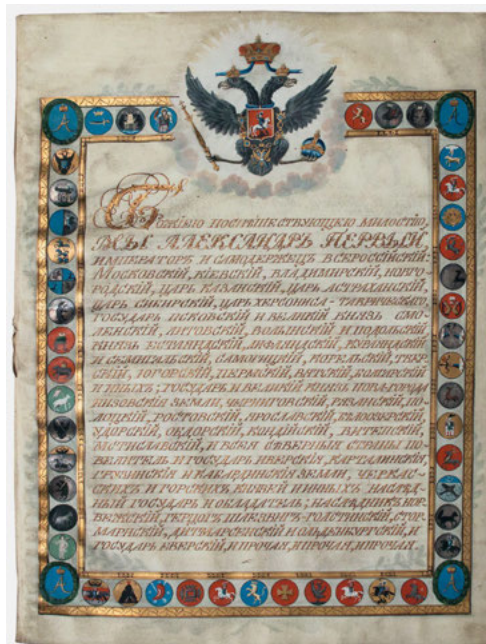 Божією поспѣшествующею милостію,
МЫ АЛЕКСАНДРЪ ПЕРВЫЙ,
ИМПЕРАТОРЪ И САМОДЕРЖЕЦЪ ВСЕРОССІЙСКІЙ:
МОСКОВСКІЙ, КІЕВСКІЙ, ВЛАДИМИРСКІЙ, НОВГО-
РОДСКІЙ, ЦАРЬ КАЗАНСКІЙ, ЦАРЬ АСТРАХАНСКІЙ,
ЦАРЬ СИБИРСКІЙ, ЦАРЬ ХЕРСОНИСА-ТАВРИЧЕСКАГО,
ГОСУДАРЬ ПСКОВСКІЙ И ВЕЛИКІЙ КНЯЗЬ СМО-
ЛЕНСКІЙ, ЛИТОВСКІЙ, ВОЛЫНСКІЙ И ПОДОЛЬСКІЙ,
КНЯЗЬ ЕСТЛЯНДСКІЙ, ЛИФЛЯНДСКІЙ, КУРЛЯНДСКІЙ
И СЕМИГАЛЬСКІЙ, САМОГИЦКІЙ, КОРЕЛЬСКІЙ, ТВЕР-
СКІЙ, ЮГОРСКІЙ, ПЕРМСКІЙ, ВЯТСКІЙ, БОЛГАРСКІЙ
И ИНЫХЪ; ГОСУДАРЬ И ВЕЛИКІЙ КНЯЗЬ НОВА-ГОРОДА
НИЗОВСКІЯ ЗЕМЛИ, ЧЕРНИГОВСКІЙ, РЯЗАНСКІЙ, ПО-
ЛОЦКІЙ, РОСТОВСКІЙ, ЯРОСЛАВСКІЙ, БѢЛООЗЕРСКІЙ,
УДОРСКІЙ, ОБДОРСКІЙ, КОНДІЙСКІЙ, ВИТЕПСКІЙ,
МСТИСЛАВСКІЙ, И ВСЕЯ СѢВЕРНЫЯ СТРАНЫ ПО-
ВЕЛИТЕЛЬ И ГОСУДАРЬ ИВЕРСКІЯ, КАРТАЛИНСКІЯ,
ГРУЗИНСКІЯ И КАБАРДИНСКІЯ ЗЕМЛИ, ЧЕРКАС-
СКИХЪ И ГОРСКИХЪ КНЯЗЕЙ И ИНЫХЪ НАСЛѢД-
НЫЙ ГОСУДАРЬ И ОБЛАДАТЕЛЬ; НАСЛѢДНИКЪ НОР-
ВЕЖСКІЙ, ГЕРЦОГЪ ШЛЕЗВИГЪ-ГОЛСТИНСКІЙ, СТОР-
МАРНСКІЙ, ДИТМАРСЕНСКІЙ И ОЛЬДЕНБУРГСКІЙ, И
ГОСУДАРЬ ЕВЕРСКІЙ, И ПРОЧАЯ, И ПРОЧАЯ, И ПРОЧАЯ.